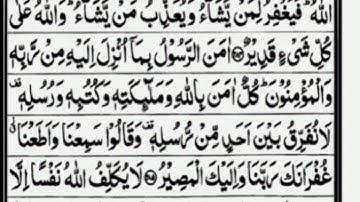 اللهُ ؕ فَيَغْفِرُ لِمَنْ يَّشَآءُ وَيُعَذِّبُ مَنْ يَّشَآءُ ؕ وَاللهُ عَلٰى
كُلِّ شَىْءٍ قَدِيْرٌ ۝ اٰمَنَ الرَّسُوْلُ بِمَآ اُنْزِلَ اِلَيْهِ مِنْ رَّبِّهٖ
وَالْمُؤْمِنُوْنَ ؕ كُلٌّ اٰمَنَ بِاللهِ وَمَلٰٓئِكَتِهٖ وَكُتُبِهٖ وَرُسُلِهٖ ۟
لَا نُفَرِّقُ بَيْنَ اَحَدٍ مِّنْ رُّسُلِهٖ ۟ وَقَالُوْا سَمِعْنَا وَاَطَعْنَا
غُفْرَانَكَ رَبَّنَا وَاِلَيْكَ الْمَصِيْرُ ۝ لَا يُكَلِّفُ اللهُ نَفْسًا اِلَّا